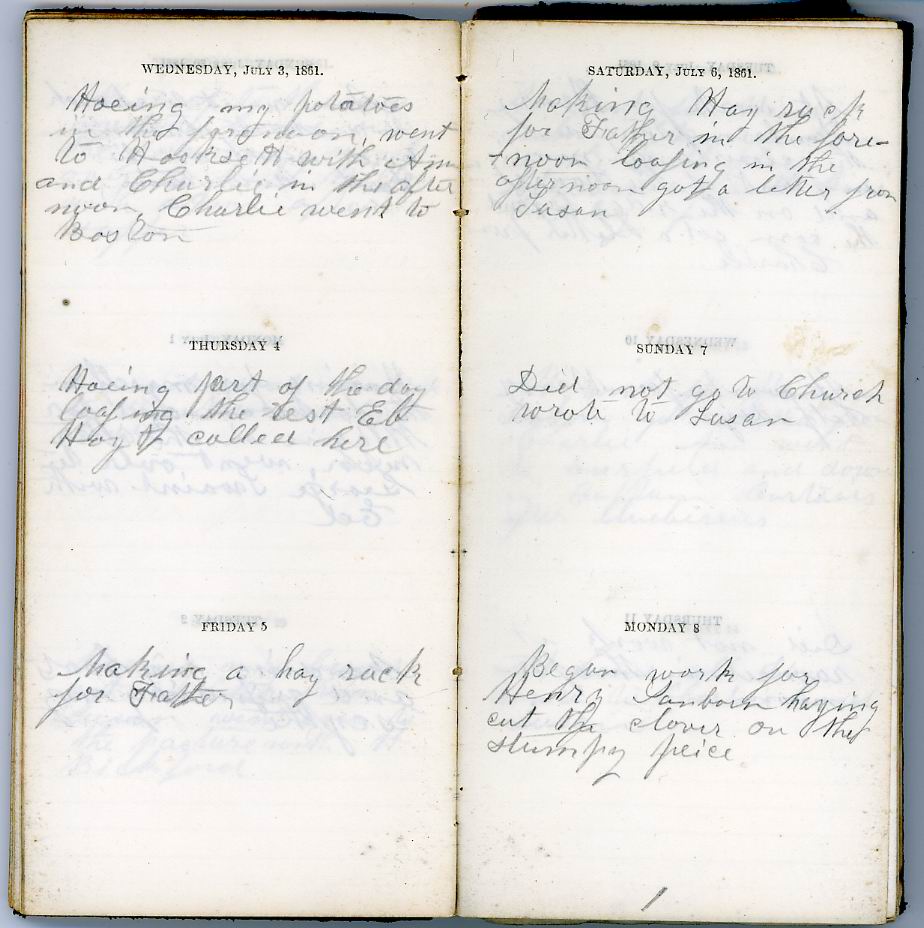 WEDNESDAY, JULY 3, 1861.
Hoeing my potatoes
in the forenoon, went
to Hooksett with
and Charlie in the after
noon, Charlie went to
Boston
THURSDAY 4
Hoeing part of the day
loafing the rest Eb
Hoyt called here
FRIDAY 5
Making a hay rack
for Father
SATURDAY, JULY 6, 1861.
Making Hay rack
for Father in the fore-
noon loafing in the
afternoon got a letter from
Susan
SUNDAY 7
Did not go to Church
wrote to Susan
MONDAY 8
Began work for
Henry Sanborn haying
cut the clover on the
stumpy peice